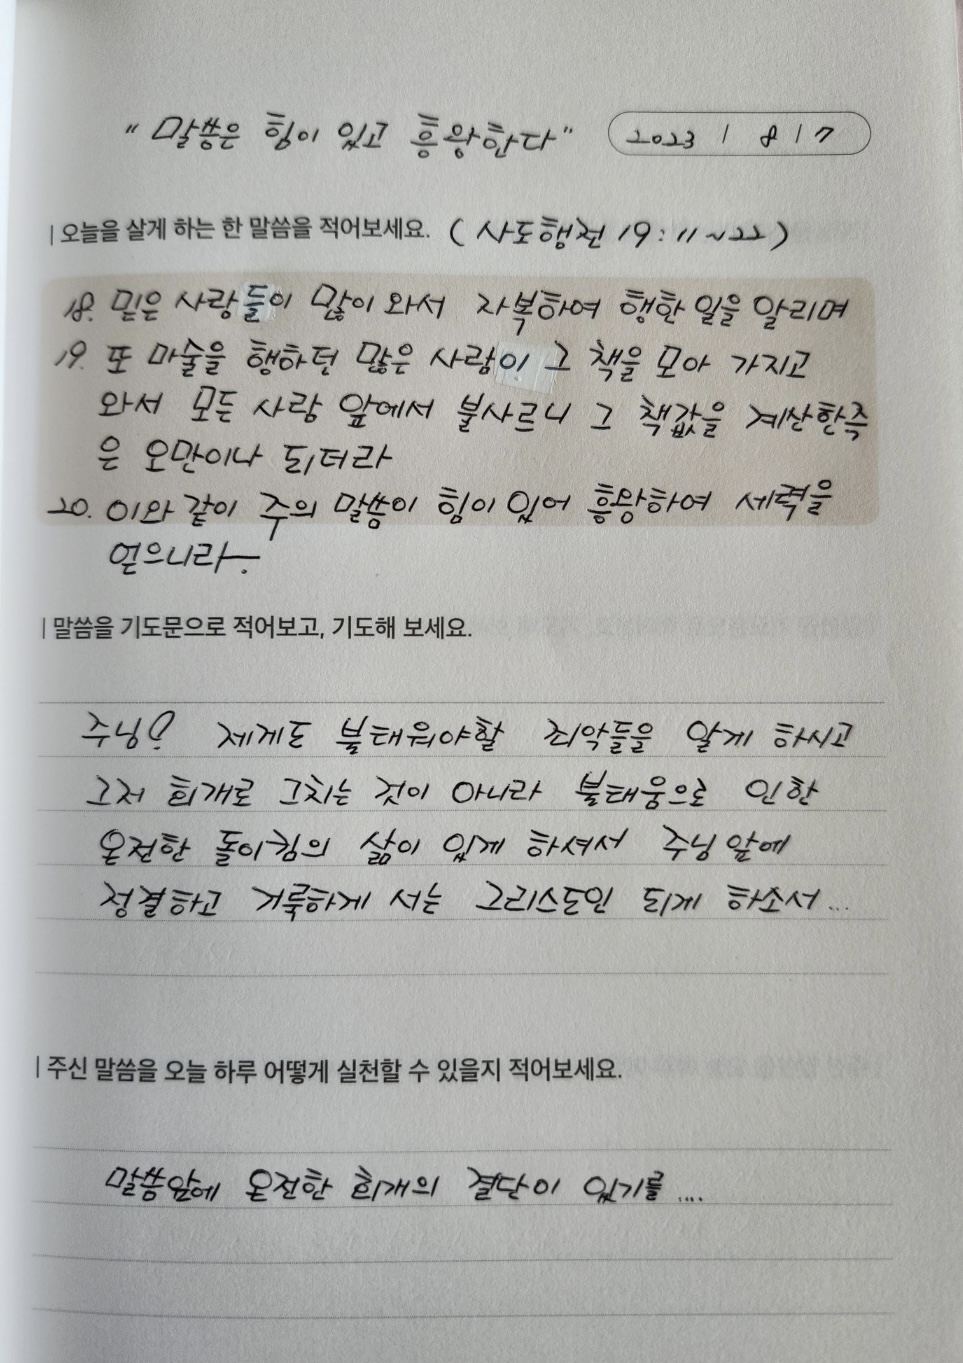 "말씀은 힘이 있고 흥왕한다" 2023 / 8 / 7
| 오늘을 살게 하는 한 말씀을 적어보세요. (사도행전 19:11~22)
18. 믿은 사람들이 많이 와서 자복하여 행한 일을 알리며
19. 또 마술을 행하던 많은 사람이 그 책을 모아 가지고
와서 모든 사람 앞에서 불사르니 그 책값을 계산한즉
은 오만이나 되더라
20. 이와 같이 주의 말씀이 힘이 있어 흥왕하여 세력을
얻으니라.
| 말씀을 기도문으로 적어보고, 기도해 보세요.
주님! 제게도 불태워야할 죄악들을 알게 하시고
그저 회개로 그치는 것이 아니라 불태움으로 인한
온전한 돌이킴의 삶이 있게 하셔서 주님 앞에
정결하고 거룩하게 서는 그리스도인 되게 하소서...
| 주신 말씀을 오늘 하루 어떻게 실천할 수 있을지 적어보세요.
말씀앞에 온전한 회개의 결단이 있기를....